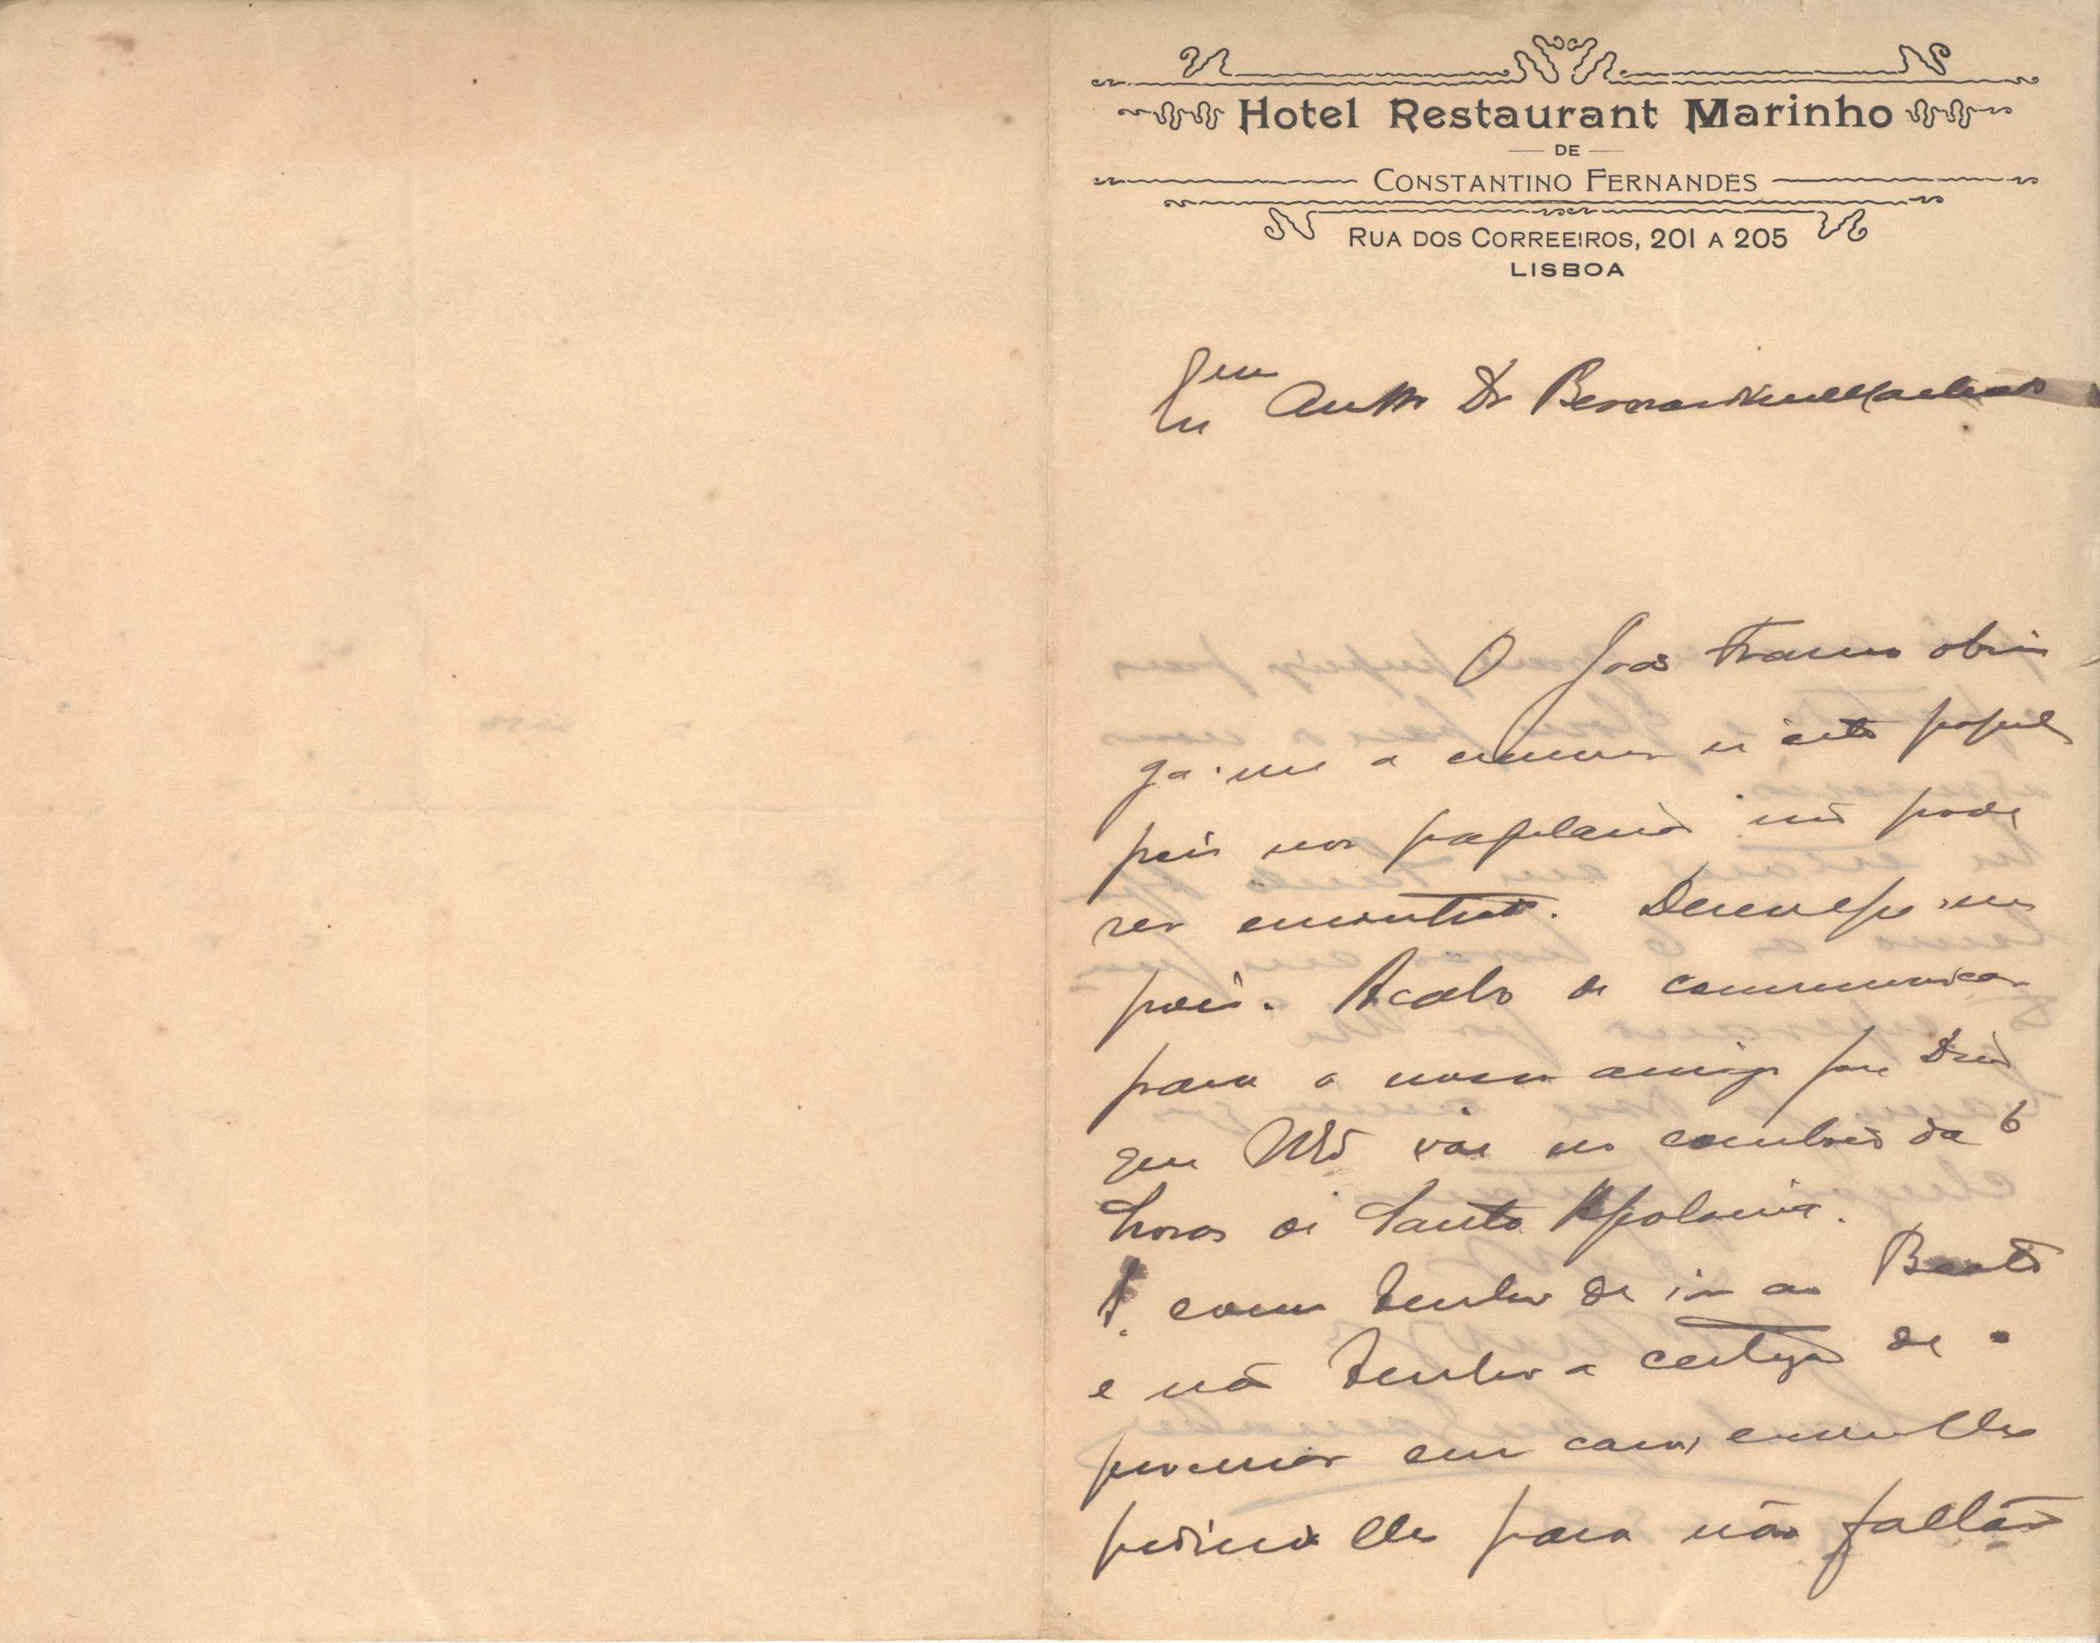 Hotel Restaurant Marinho
DE
CONSTANTINO FERNANDES
RUA DOS CORREEIROS, 201 A 205
LISBOA
Dr Bernardino Machado
O João Franco obri
ga-me a escrever n'este papel
pois nas papelarias não pode
ser encontrado. Desculpe-me
pois. Acabo de communicar
para o nosso amigo José Diniz
que vae no comboio da 6
horas de Santa Apolonia.
E como tenho de ir ao Beato
e não tenho a certeza de o
procurar em casa,
para não faltar